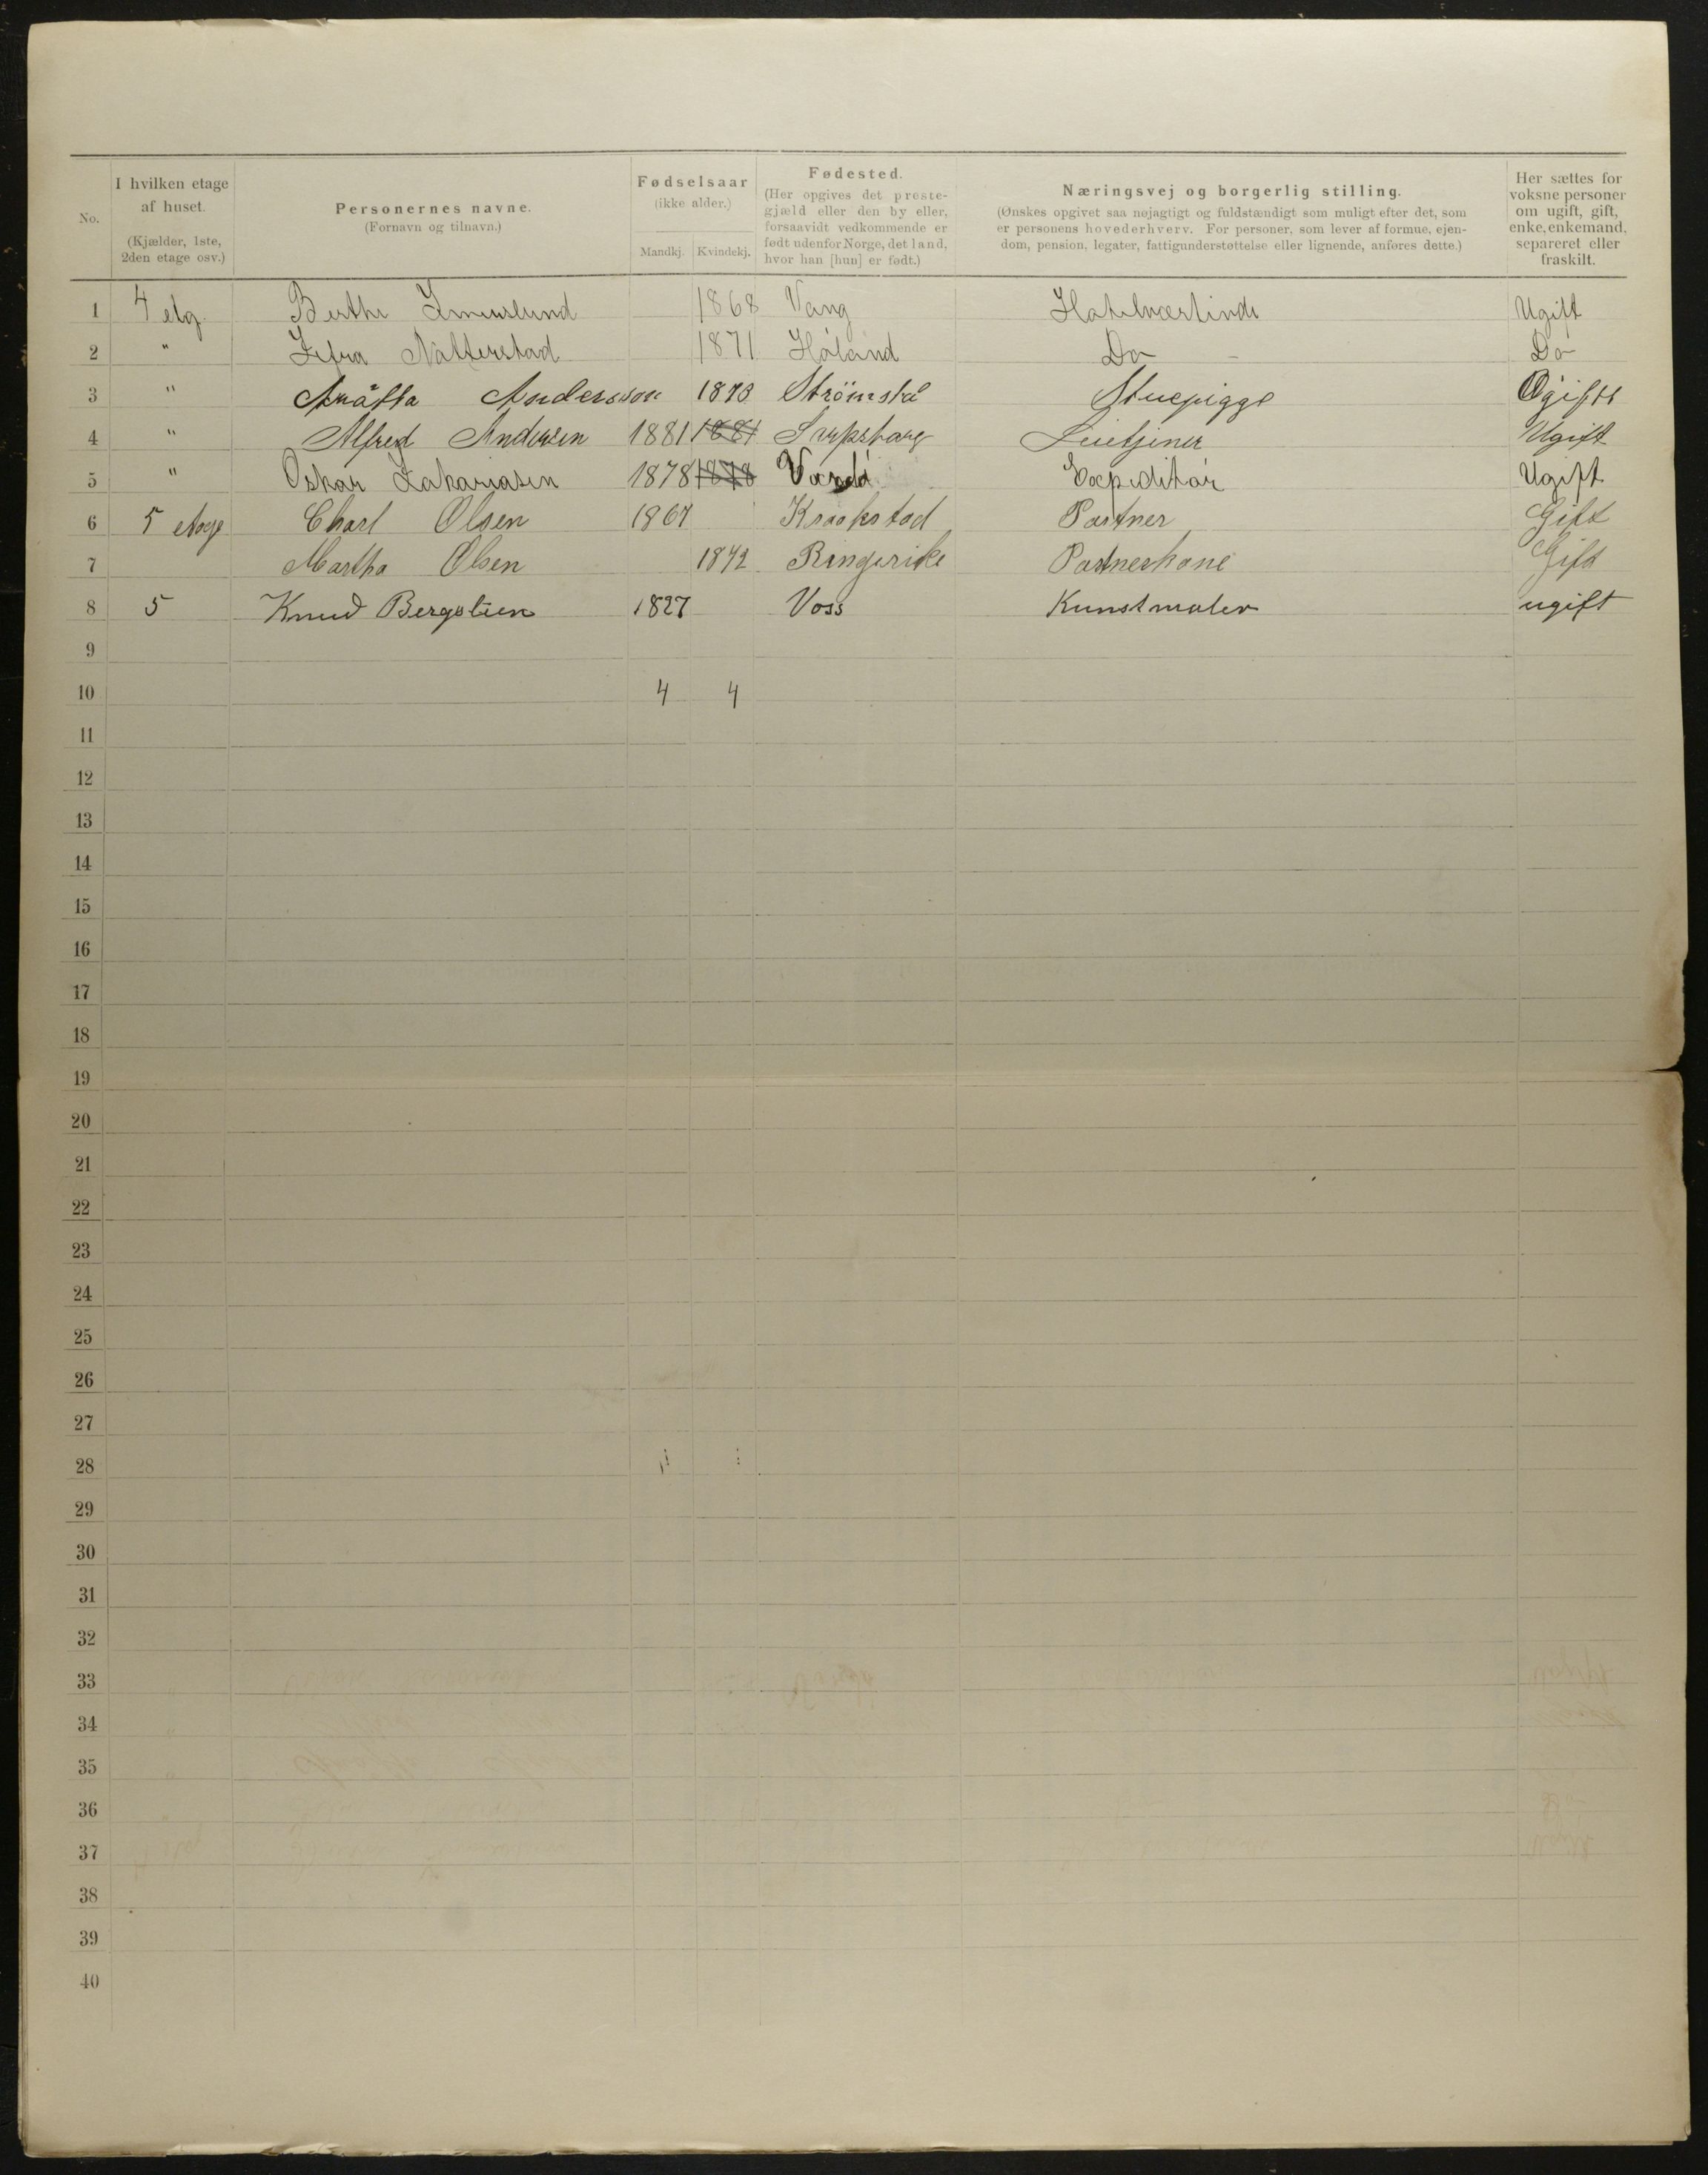 No.
I hvilken etage af huset.
(Kjælder, 1ste, 2den etage osv.)
Personernes navne.
(Fornavn og tilnavn.)
Fødselsaar
(ikke alder.)
Mandkj. Kvindekj.
Fødested.
(Her opgives det prestegjæld eller den by eller, forsaavidt vedkommende er født udenfor Norge, det land, hvor han [hun] er født.)
Næringsvej og borgerlig stilling.
(Ønskes opgivet saa nøjagtigt og fuldstændigt som muligt efter det, som er personens hovederhverv. For personer, som lever af formue, ejendom, pension, legater, fattigunderstøttelse eller lignende, anføres dette.)
Her sættes for voksne personer om ugift, gift, enke, enkemand, separeret eller fraskilt.
1 4 etg Berthe 1868 Vang Hotelværtinde Ugift
2 " Natterstad 1871 Høland Do - Do
3 " Andersson 1873 Strömsta Stuepigge Ogift
4 " Alfred Andersen 1881 1881 Sarpsborg Ugift
5 " Oskar Zakariasen 1878 1878 Vardø Expeditør Ugift
6 5 etage Charl Olsen 1867 Kraakstad Portner Gift
7 Martha Olsen 1872 Ringerike Portnerkone Gift
8 5 Knud Bergslien 1827 Voss Kunstmaler ugift
9
10 4 4
11
12
13
14
15
16
17
18
19
20
21
22
23
24
25
26
27
28
29
30
31
32
33
34
35
36
37
38
39
40